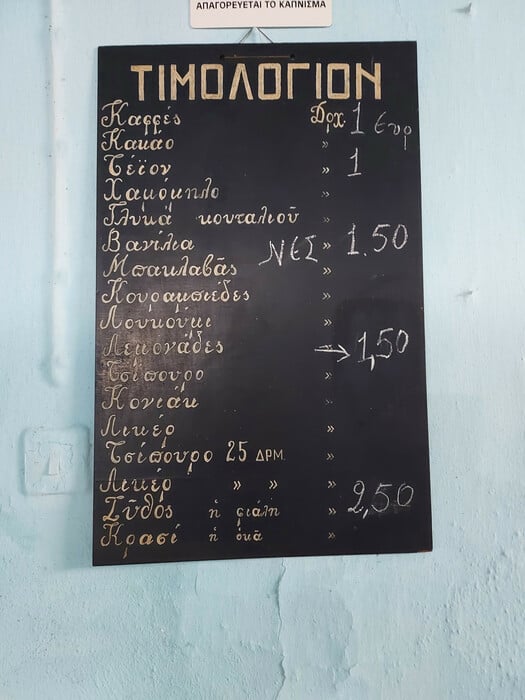 ΑΠΑΓΟΡΕΥΕΤΑΙ ΤΟ ΚΑΠΝΙΣΜΑ
ΤΙΜΟΛΟΓΙΟΝ
Καφφές Δρχ. 1 Ευρ
Κακάο »
Τέϊον » 1
Χαμόμηλο »
Γλυκά κουταλιοῦ »
Βανίλια ΝΕΣ » 1.50
Μπακλαβᾶς »
Κουραμπιέδες »
Λουκούμι »
Λεμονάδες » → 1,50
Τσίπουρο »
Κονιάκ »
Λικέρ »
Τσίπουρο 25 ΔΡΜ. »
Λικέρ » » »
Ζῦθος ἡ φιάλη » 2,50
Κρασί ἡ ὀκᾶ »